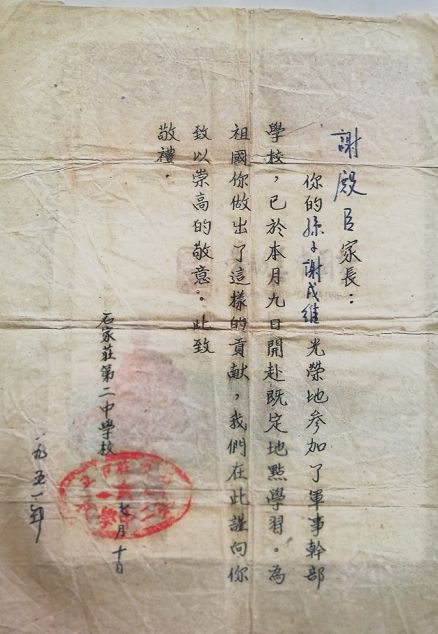 謝殿臣家長：
你的孫子謝成維光榮地参加了軍事幹部
學校，已於本月九日開赴既定地點學習。為
祖國你做出了這樣的貢献，我們在此謹向你
致以崇高的敬意。此致
敬禮.
石家莊第二中學校
一九五一年
七月十日